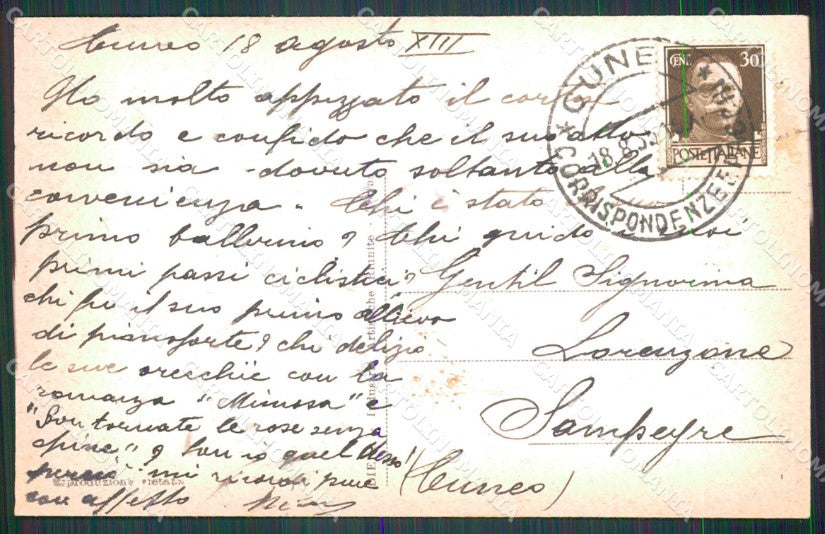 Cuneo 18 agosto XIII
Ho molto apprezzato il cortese
ricordo e confido che il suo atto
non sia dovuto soltanto alla
convenienza. Chi è stato
primo ballerino? Chi guidò i suoi
primi passi ciclistici?
chi fu il suo primo allievo
di pianoforte? chi deliziò
le sue orecchie con la
romanza "Mimosa" e
"Son tornate le rose senza
spine"? Son io quel desso!
perciò mi ricordi pure
con affetto
Gentil Signorina
Lorenzone
Sampeyre
(Cuneo)
CUNEO
CORRISPONDENZE
18.8.35
CEN. 30
POSTE ITALIANE
Riproduzione vietata
CARTOLINOMANIA